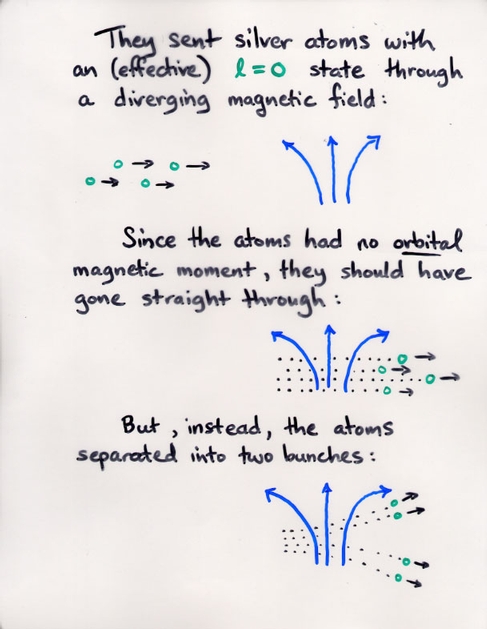 They sent silver atoms with
an (effective) l=0 state through
a diverging magnetic field:
Since the atoms had no orbital
magnetic moment, they should have
gone straight through:
But, instead, the atoms
separated into two bunches: